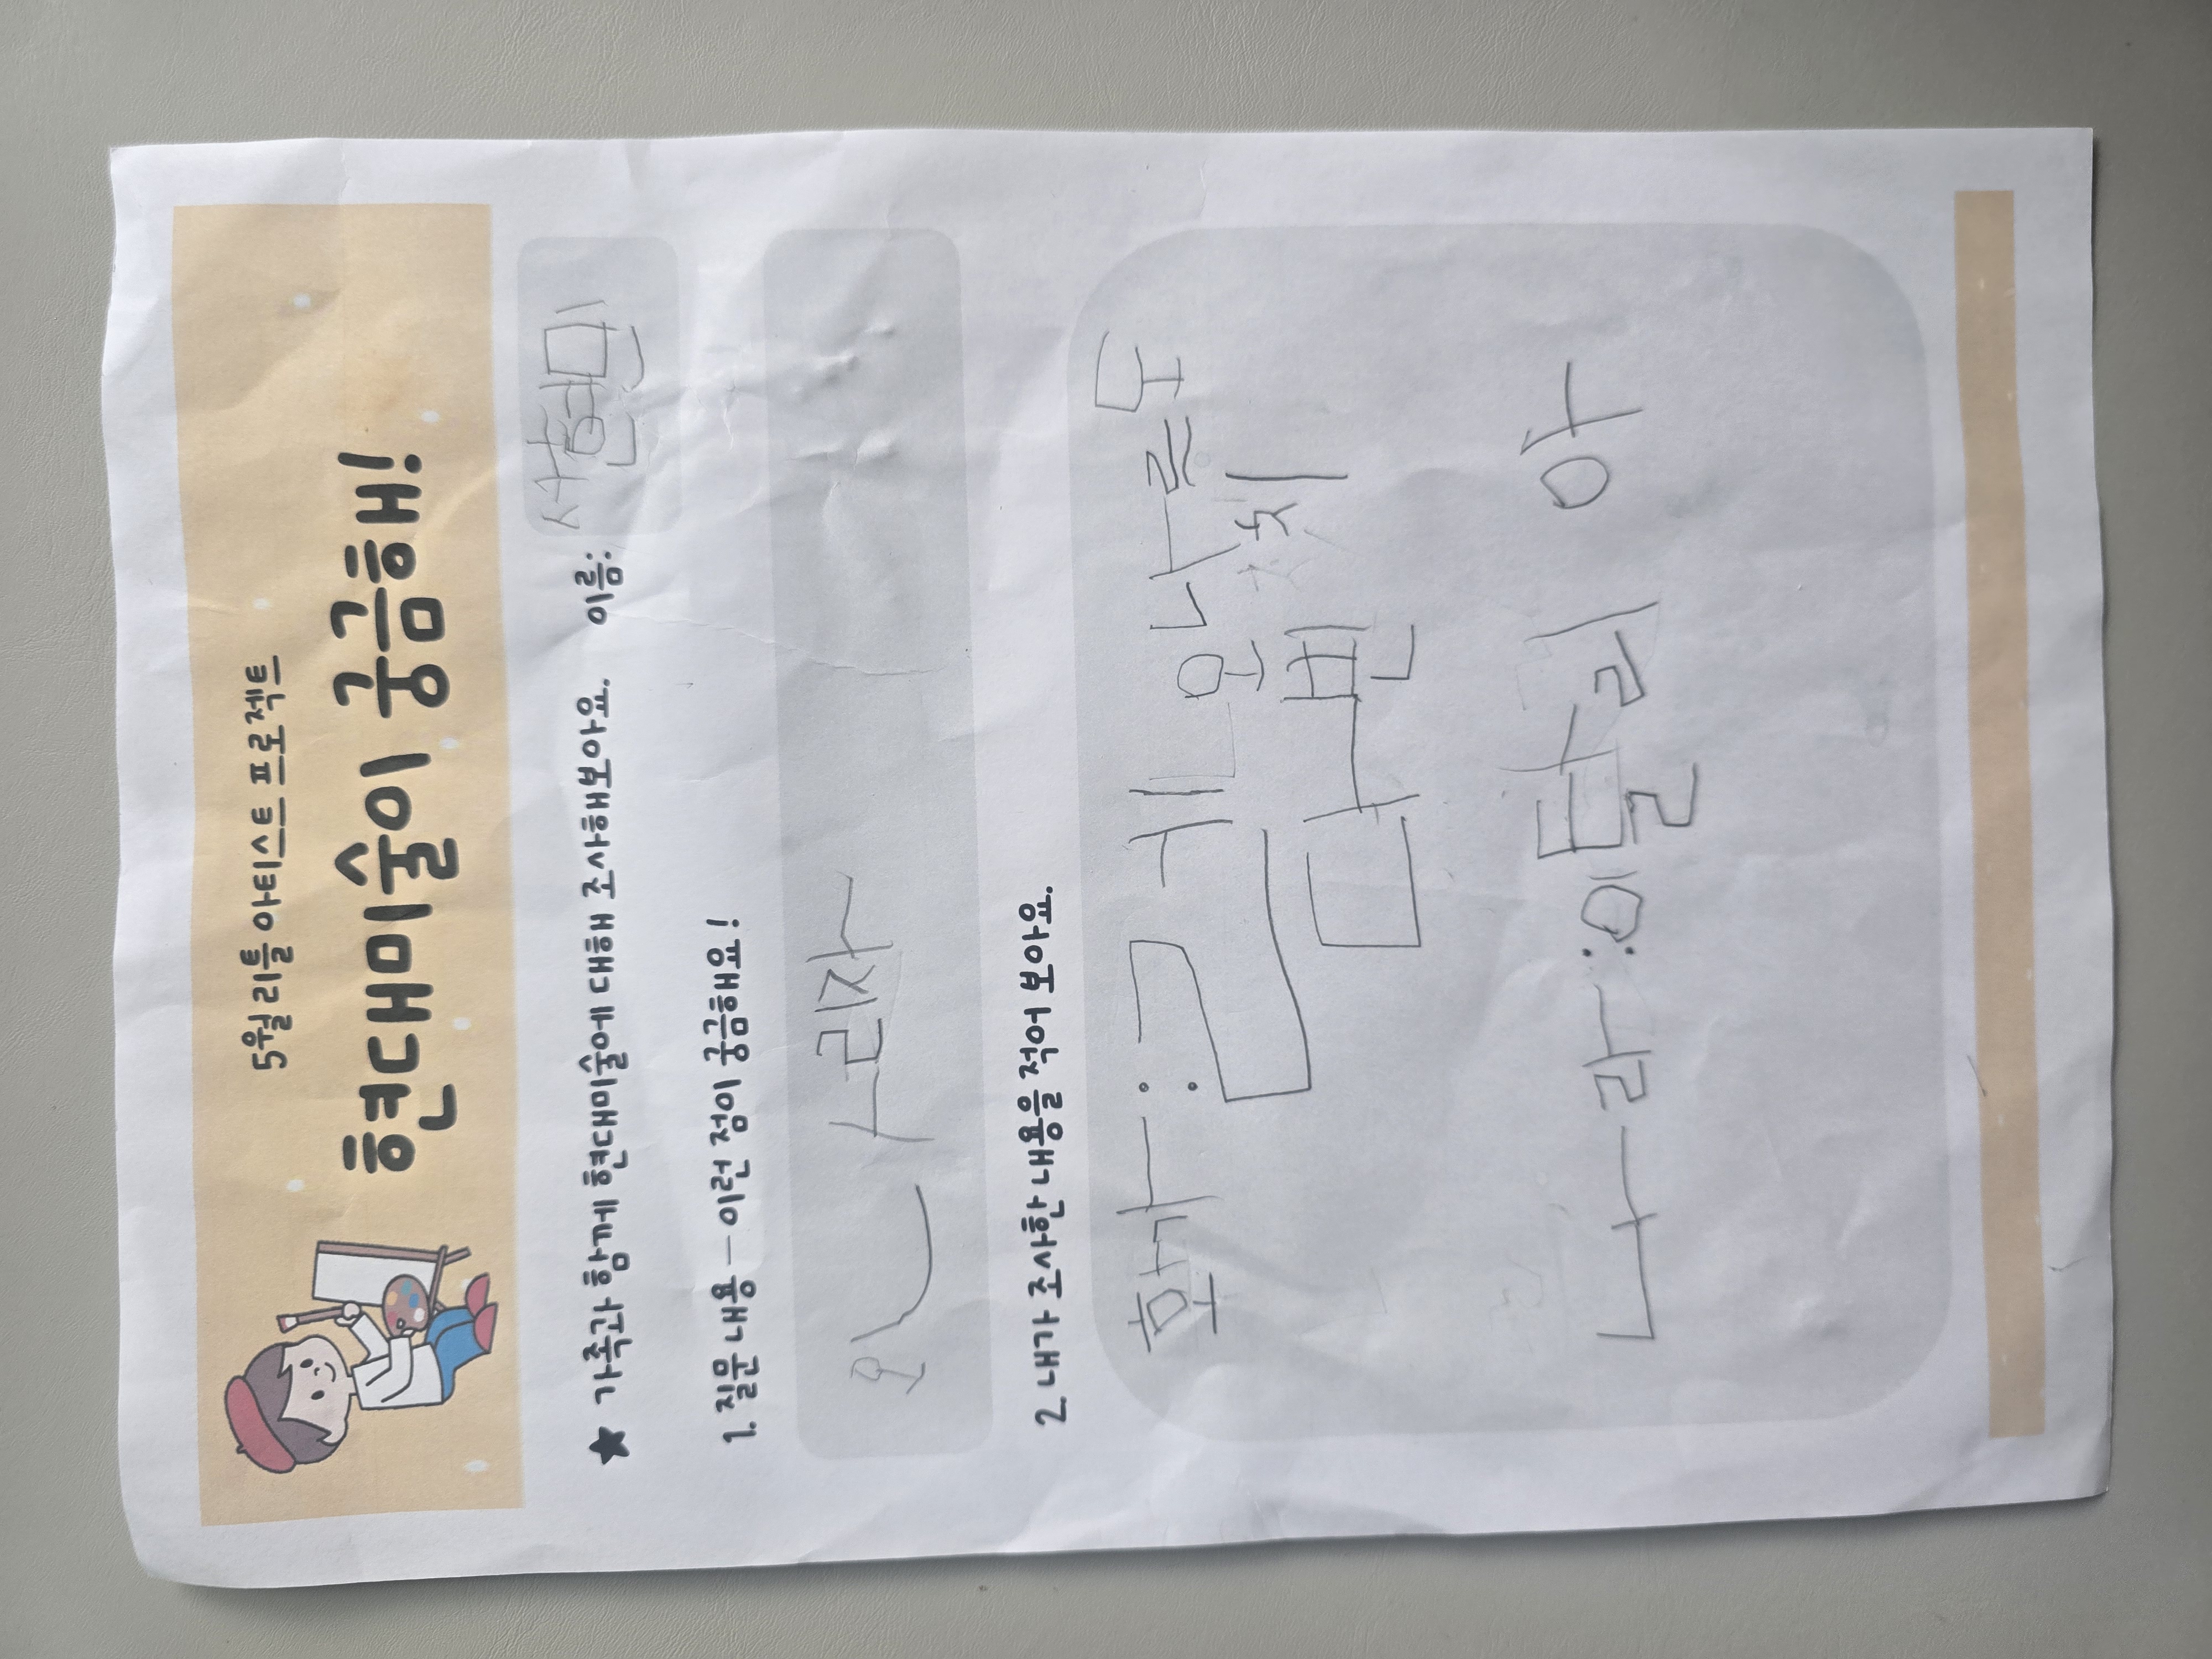 5월 리틀 아티스트 프로젝트
현대미술이 궁금해!
★ 가족과 함께 현대미술에 대해 조사해보아요. 이름: 서현민
1. 질문 내용 – 이런 점이 궁금해요!
모나리자
2. 내가 조사한 내용을 적어 보아요.
화가: 레오나르도
다빈치
나라: 이탈리아